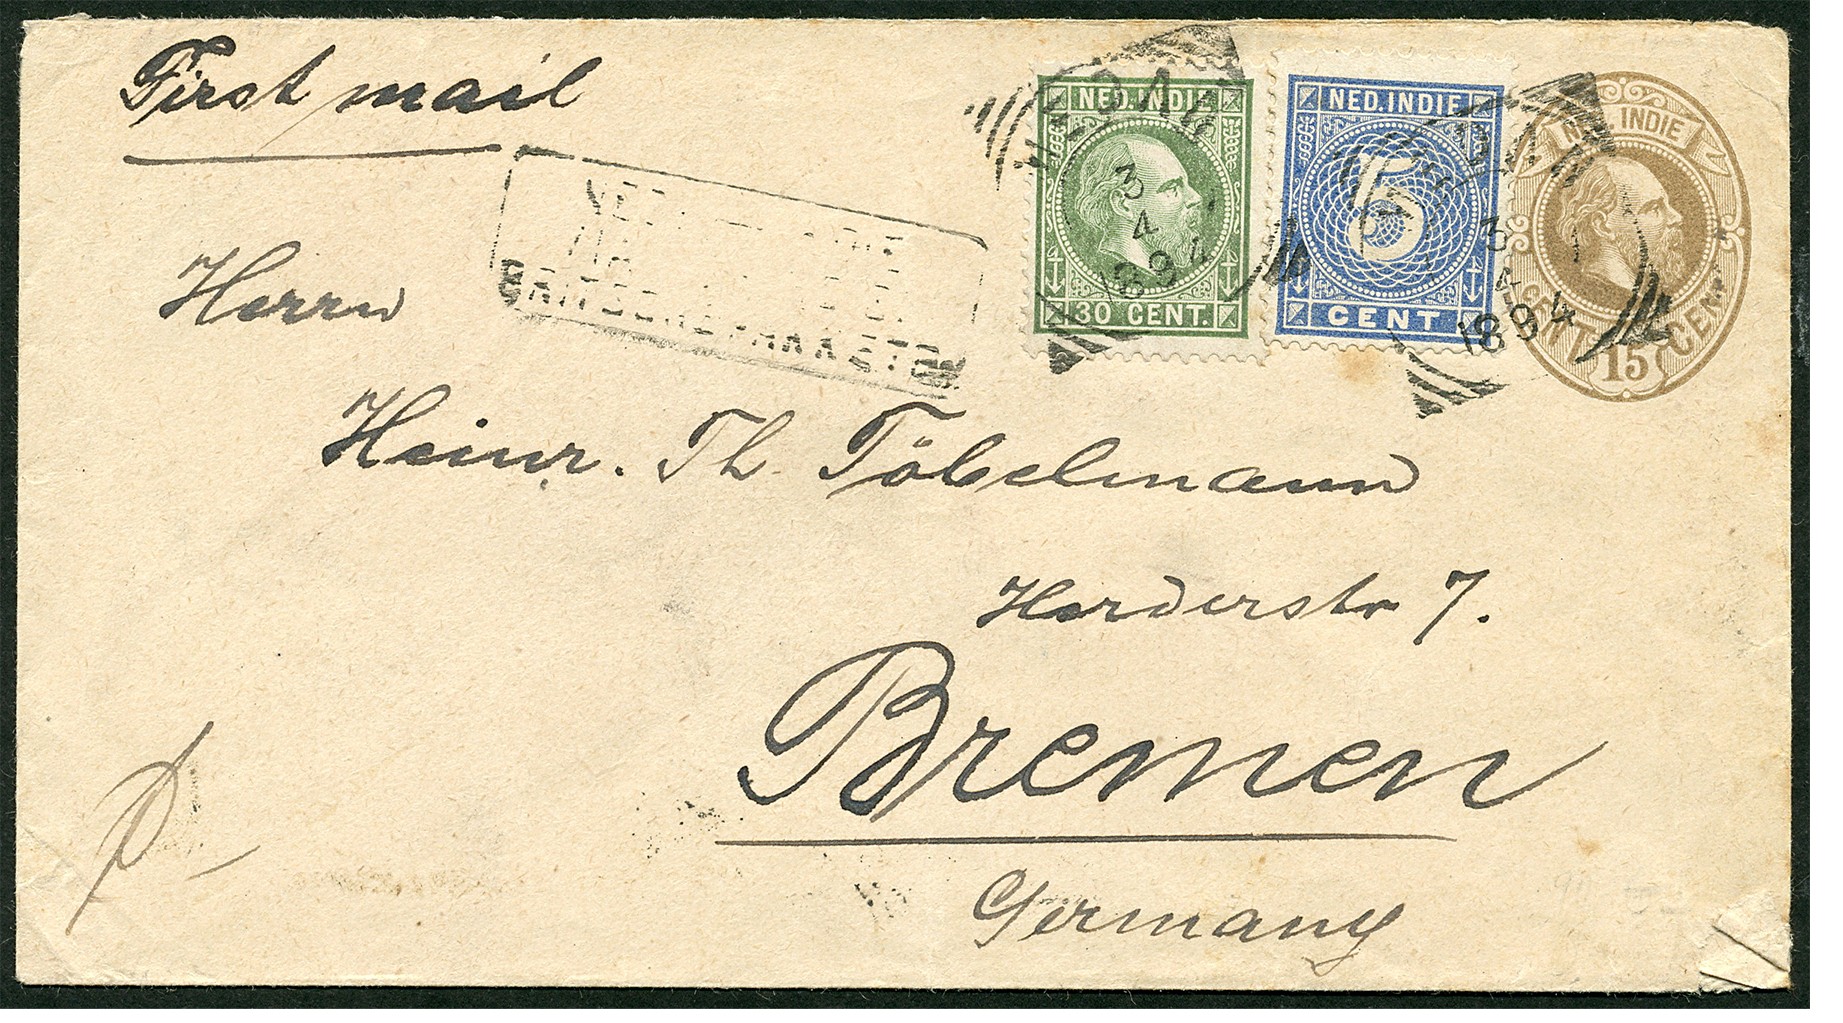 First mail
NED. INDIE
30 CENT.
NED. INDIE
5
CENT
NED. INDIE
15
CENT
CENT
3
4
1894
3
4
1894
Herrn
Heinr. Th. Töbelmann
Herderstr 7.
Bremen
Germany